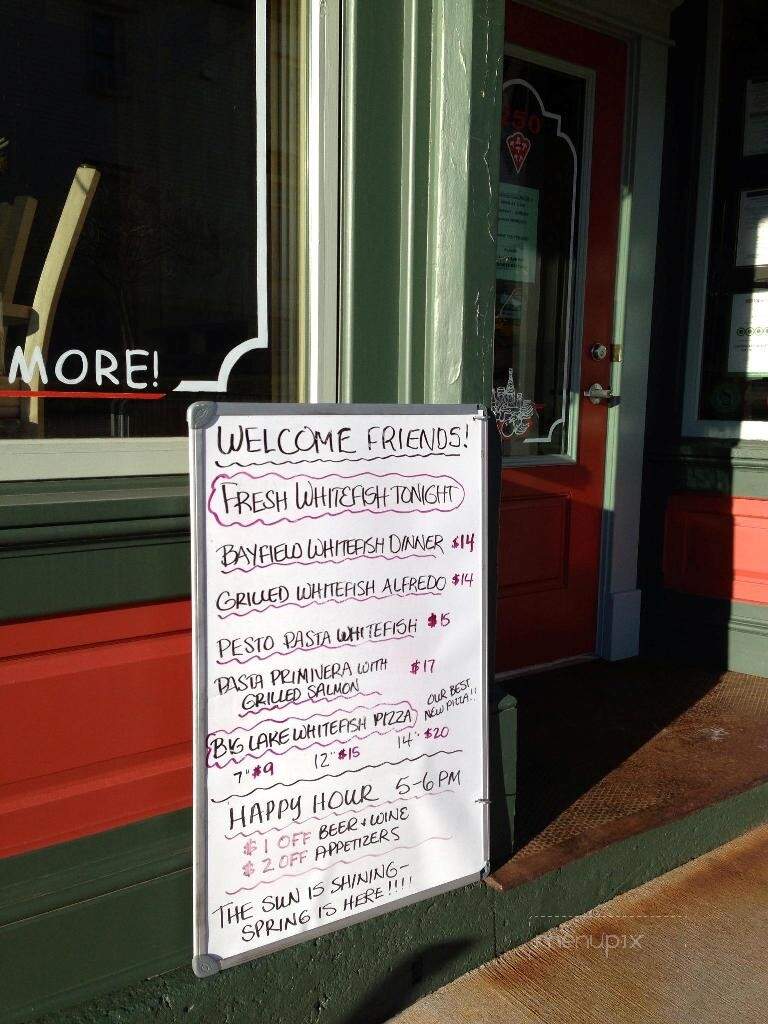 250
MORE!
WELCOME FRIENDS!
FRESH WHITEFISH TONIGHT
BAYFIELD WHITEFISH DINNER $14
GRILLED WHITEFISH ALFREDO $14
PESTO PASTA WHITEFISH $15
PASTA PRIMINERA WITH $17
GRILLED SALMON
OUR BEST
NEW PIZZA!!
BIG LAKE WHITEFISH PIZZA
7" $9 12" $15 14" $20
HAPPY HOUR 5-6 PM
$1 OFF BEER + WINE
$2 OFF APPETIZERS
THE SUN IS SHINING-
SPRING IS HERE!!!!
menupix